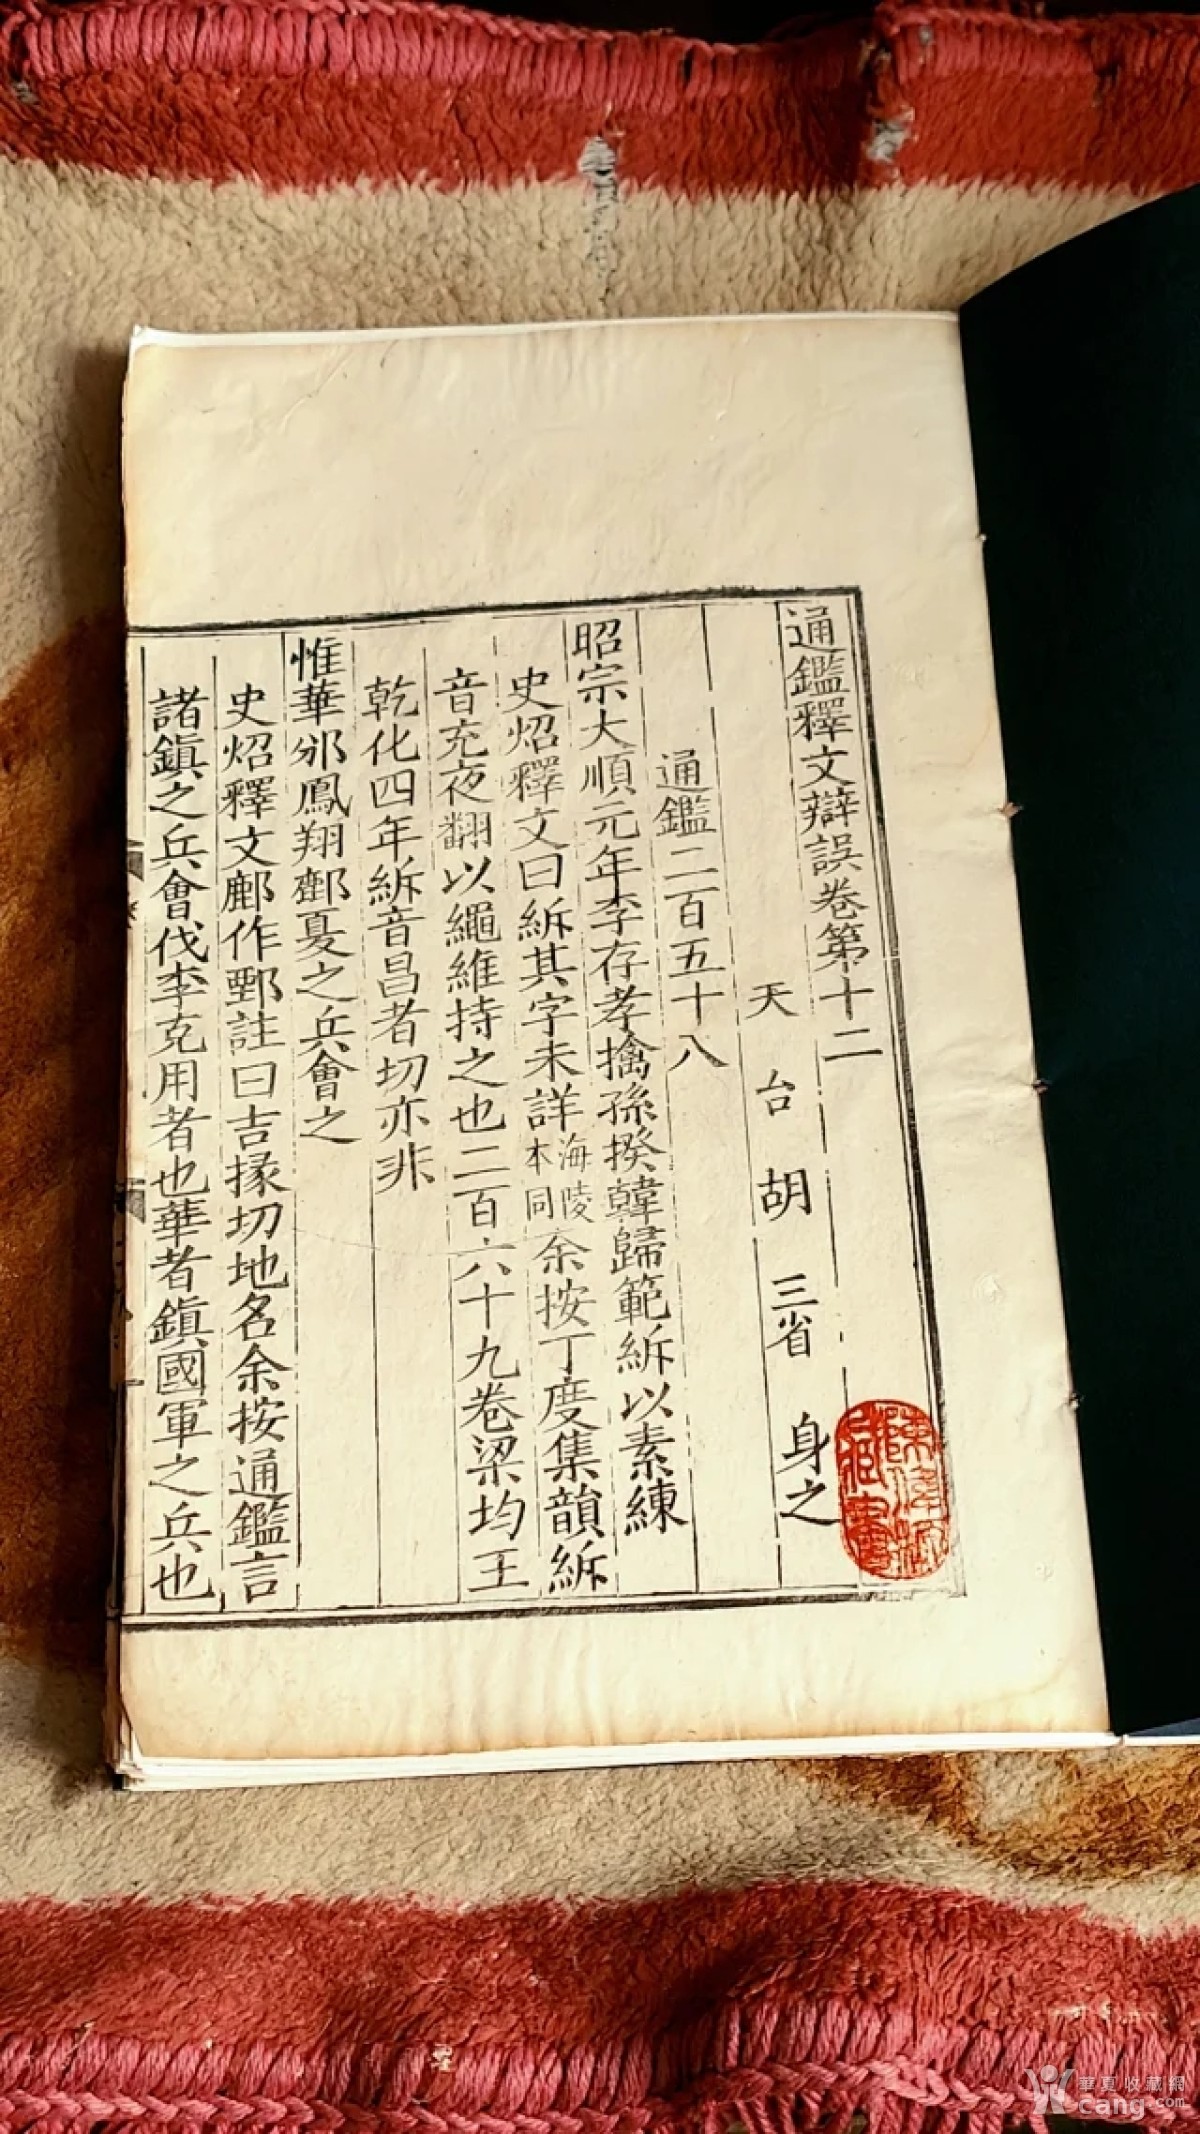 通鑑釋文辯誤卷第十二
天台胡三省身之
通鑑二百五十八
昭宗大順元年李存孝擒孫揆韓歸範紤以素練
史炤釋文曰紤其字未詳海陵本同余按丁度集韻紤
音充夜翻以繩維持之也二百六十九卷梁均王
乾化四年紤音昌者切亦非
惟華邠鳳翔鄜夏之兵會之
史炤釋文鄜作鄄註曰吉掾切地名余按通鑑言
諸鎮之兵會伐李克用者也華者鎮國軍之兵也
藏書
華夏收藏網
cang.com